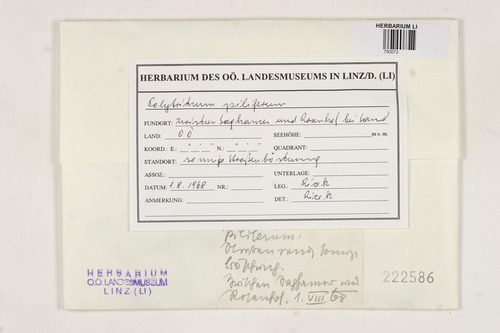 HERBARIUM LI
750073
HERBARIUM DES OÖ. LANDESMUSEUMS IN LINZ/D. (LI)
Polytrichum piliferum
FUNDORT: zwischen Saghammer und Rosenhof bei Sand
LAND: OÖ SEEHÖHE: m s. m.
KOORD.: E.: ° ' " N.: ° ' " QUADRANT:
STANDORT: sonnige Straßenböschung
ASSOZ.: UNTERLAGE:
DATUM: 1.8.1968 NR.: LEG.: Ricek
ANMERKUNG: DET.: Ricek
piliferum.
Straßenrand, sonnige
Böschung.
Zwischen Saghammer und
Rosenhof. 1. VIII 68
HERBARIUM
O.Ö. LANDESMUSEUM
LINZ (LI)
222586